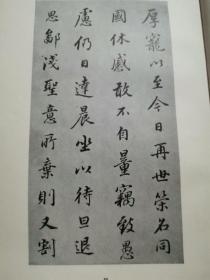 厚寵以至今日再世榮名同
國休慼敢不自量竊致愚
慮仍日達晨坐以待旦退
思鄙淺聖意所棄則又割